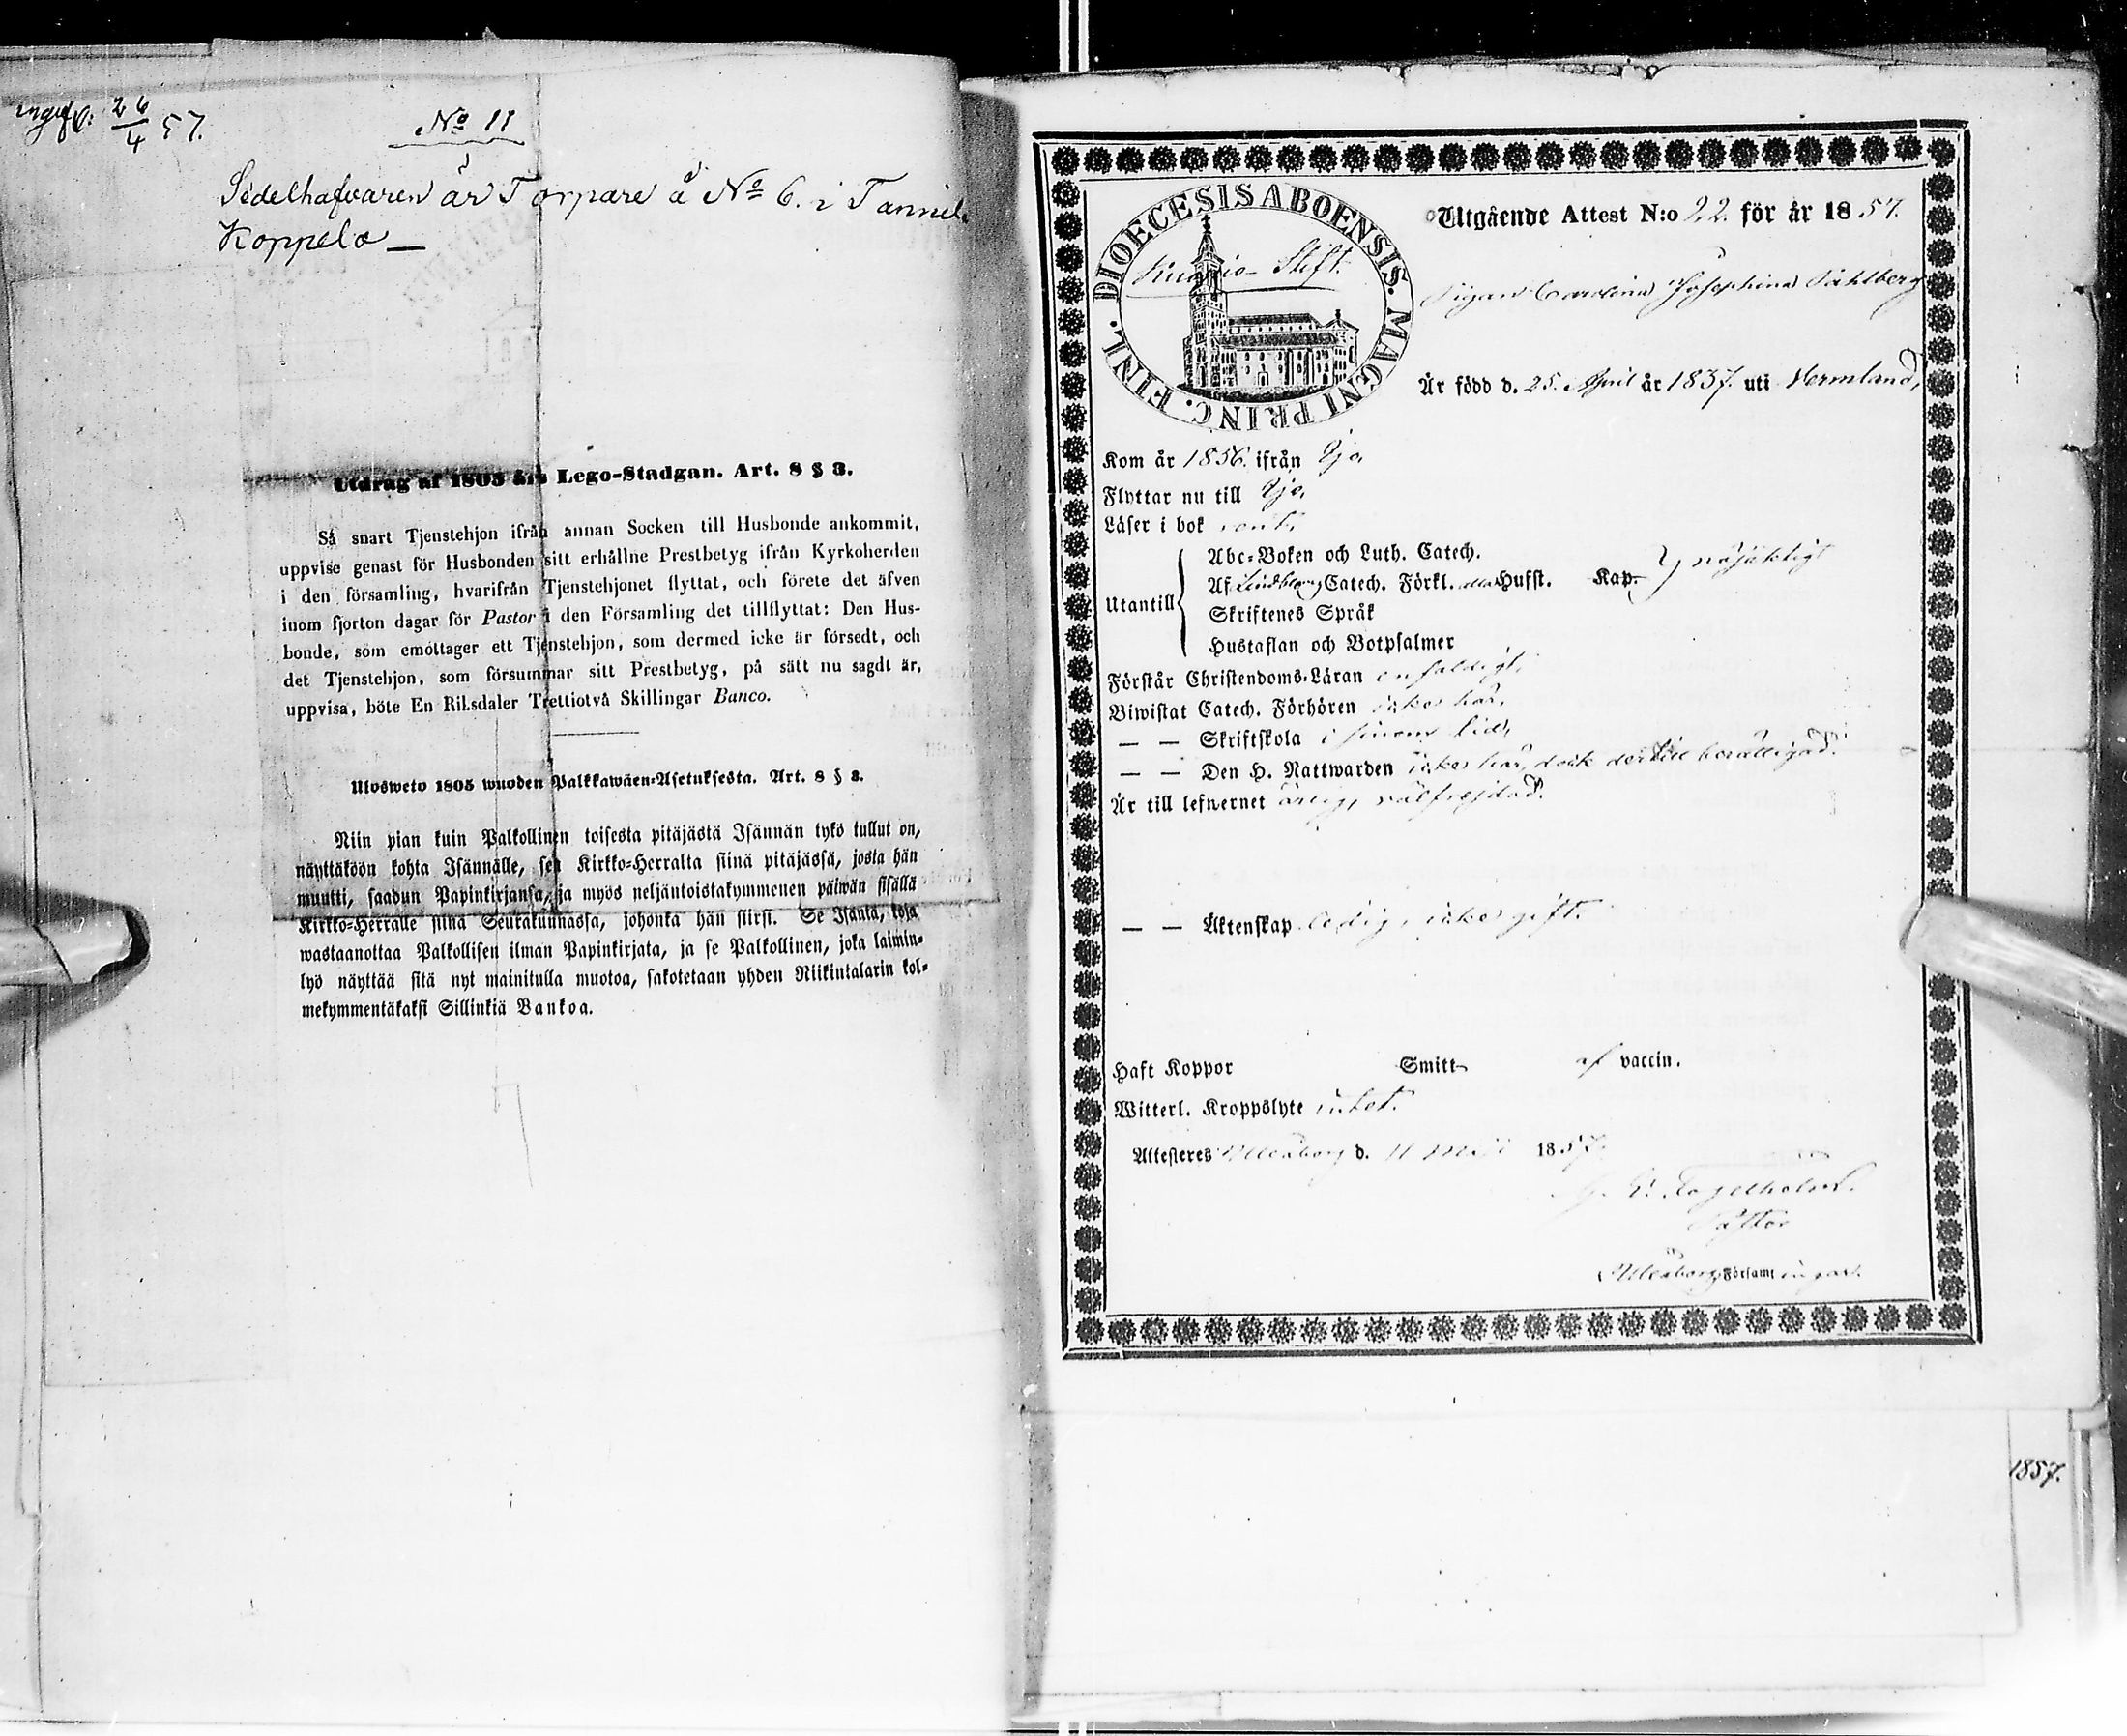 ingifv: 26/4 57.
No 11
Sedelhafvaren är Torpare å No 6. i Tannila
Koppelo
Utdrag af 1805 års Lego-Stadgan. Art. 8 § 3.
Så snart Tjenstehjon ifrån annan Socken till Husbonde ankommit,
uppvise genast för Husbonden sitt erhållne Prestbetyg ifrån Kyrkoherden
i den församling, hvarifrån Tjenstehjonet flyttat, och förete det äfven
inom fjorton dagar för Pastor i den Församling det tillflyttat: Den Hus-
bonde, som emottager ett Tjenstehjon, som dermed icke är försedt, och
det Tjenstehjon, som försummar sitt Prestbetyg, på sätt nu sagdt är,
uppvisa, böte En Riksdaler Trettiotvå Skillingar Banco.
Ulosweto 1805 wuoden Palkkawäen-Asetuksesta. Art. 8 § 3.
Niin pian kuin Palkollinen toisesta pitäjästä Isännän tykö tullut on,
näyttäköön kohta Isännälle, sen Kirkko-Herralta siinä pitäjässä, josta hän
muutti, saadun Papinkirjansa, ja myös neljäntoistakymmenen päiwän sisällä
Kirkko-Herralle siinä Seurakunnassa, johonka hän siirsi. Se Isäntä, koja
wastaanottaa Palkollisen ilman Papinkirjata, ja se Palkollinen, joka laimin-
lyö näyttää sitä nyt mainitulla muotoa, sakotetaan yhden Riikintalarin kol-
mekymmentäkaksi Sillinkiä Bankoa.
DIOECESIS ABOENSIS. MAGNI PRINC. FINL.
Kuopio Stift.
Utgående Attest N:o 22. för år 1857.
Pigan Carolina Josephina Påhlberg
Är född d. 25. April år 1837. uti Vermland,
Kom år 1856. ifrån Ijo,
Flyttar nu till Ijo,
Läser i bok rent,
Utantill
Abc-Boken och Luth. Catech.
Af Lindblom Catech. Förkl. Husst. Kap. nöjaktigt
Skriftenes Språk
Hustaflan och Botpsalmer
Förstår Christendoms-Läran enfaldigt,
Biwistat Catech. Förhören icke här,
— — Skriftskola i sinom tid,
— — Den H. Nattwarden icke här, dock dertill berättigad.
Är till lefwernet ärlig, välfrejdad.
— — Äktenskap ledig, icke gift.
Haft Koppor Smitt af vaccin.
Witterl. Kroppslyte intet.
Attesteres Uleåborg d. 11 1857.
Pastor
Uleåborg Församlingar.
1857.